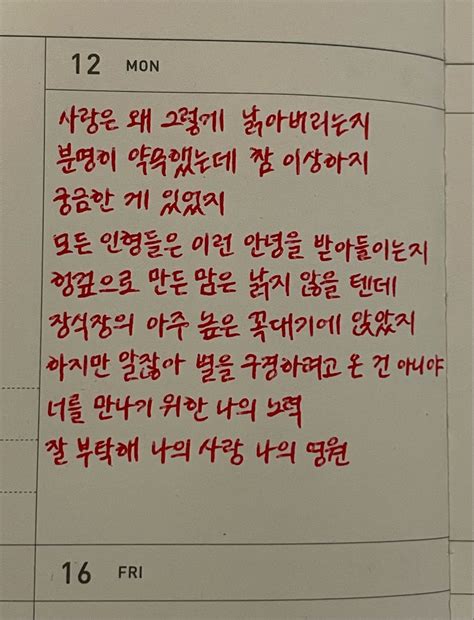 12 MON
사랑은 왜 그렇게 낡아버리는지
분명히 약속했는데 참 이상하지
궁금한 게 있었지
모든 인형들은 이런 안녕을 받아들이는지
헝겊으로 만든 맘은 낡지 않을 텐데
장식장의 아주 높은 꼭대기에 앉았지
하지만 알잖아 별을 구경하려고 온 건 아니야
너를 만나기 위한 나의 노력
잘 부탁해 나의 사랑 나의 영원
16 FRI